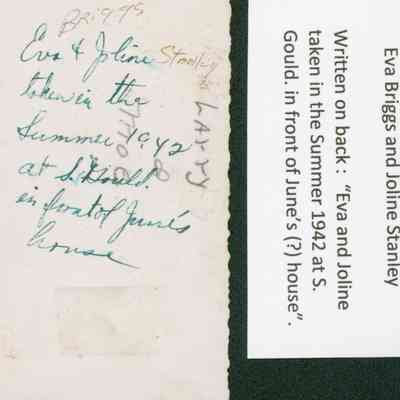 Briggs
Eva & Joline Stanley
taken in the
Summer 1942
at S. Gould.
in front of June's
house
Larry
Eva Briggs and Joline Stanley
Written on back : "Eva and Joline
taken in the Summer 1942 at S.
Gould. in front of June's (?) house".